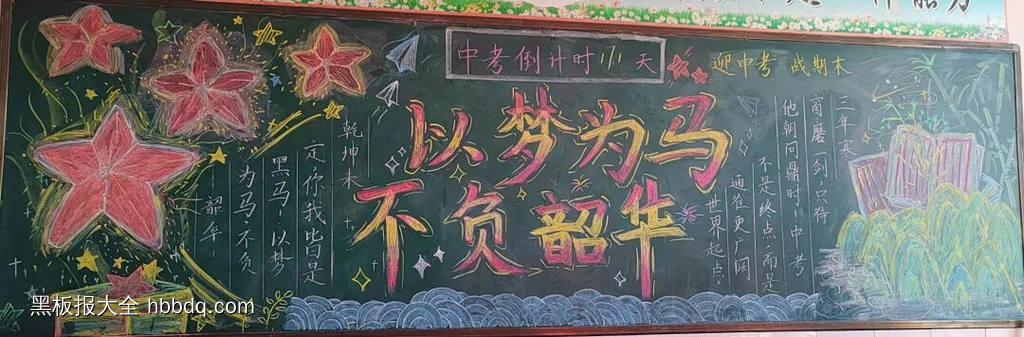 中考倒计时171天
迎中考 战期末
以梦为马
不负韶华
乾坤未
定,你我皆是
黑马,以梦
为马,不负
韶华
三年寒
窗磨一剑,只待
他朝问鼎时,中考
不是终点而是
通往更广阔
世界起点。
黑板报大全 hbbdq.com